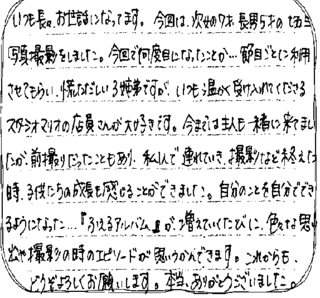 いつも長い、お世話になってます。今回は、次女の7才、長男5才の七五三
写真撮影をしました。今回で何度目になったことか…節目ごとに利用
させてもらい、慌ただしい3姉弟ですが、いつも温かく受け入れてくださる
スタジオマリオの店員さんが大好きです。今までは主人も一緒に来てまし
たが、前撮りだったこともあり、私1人で連れていき、撮影など終えた
時、子供たちの成長を感じることができました。自分のことを自分ででき
るようになった…『ふえるアルバム』が増えていくたびに、色々な思い
出や撮影の時のエピソードが思いうかんできます。これからも、
どうぞよろしくお願いします。本当、ありがとうございました。